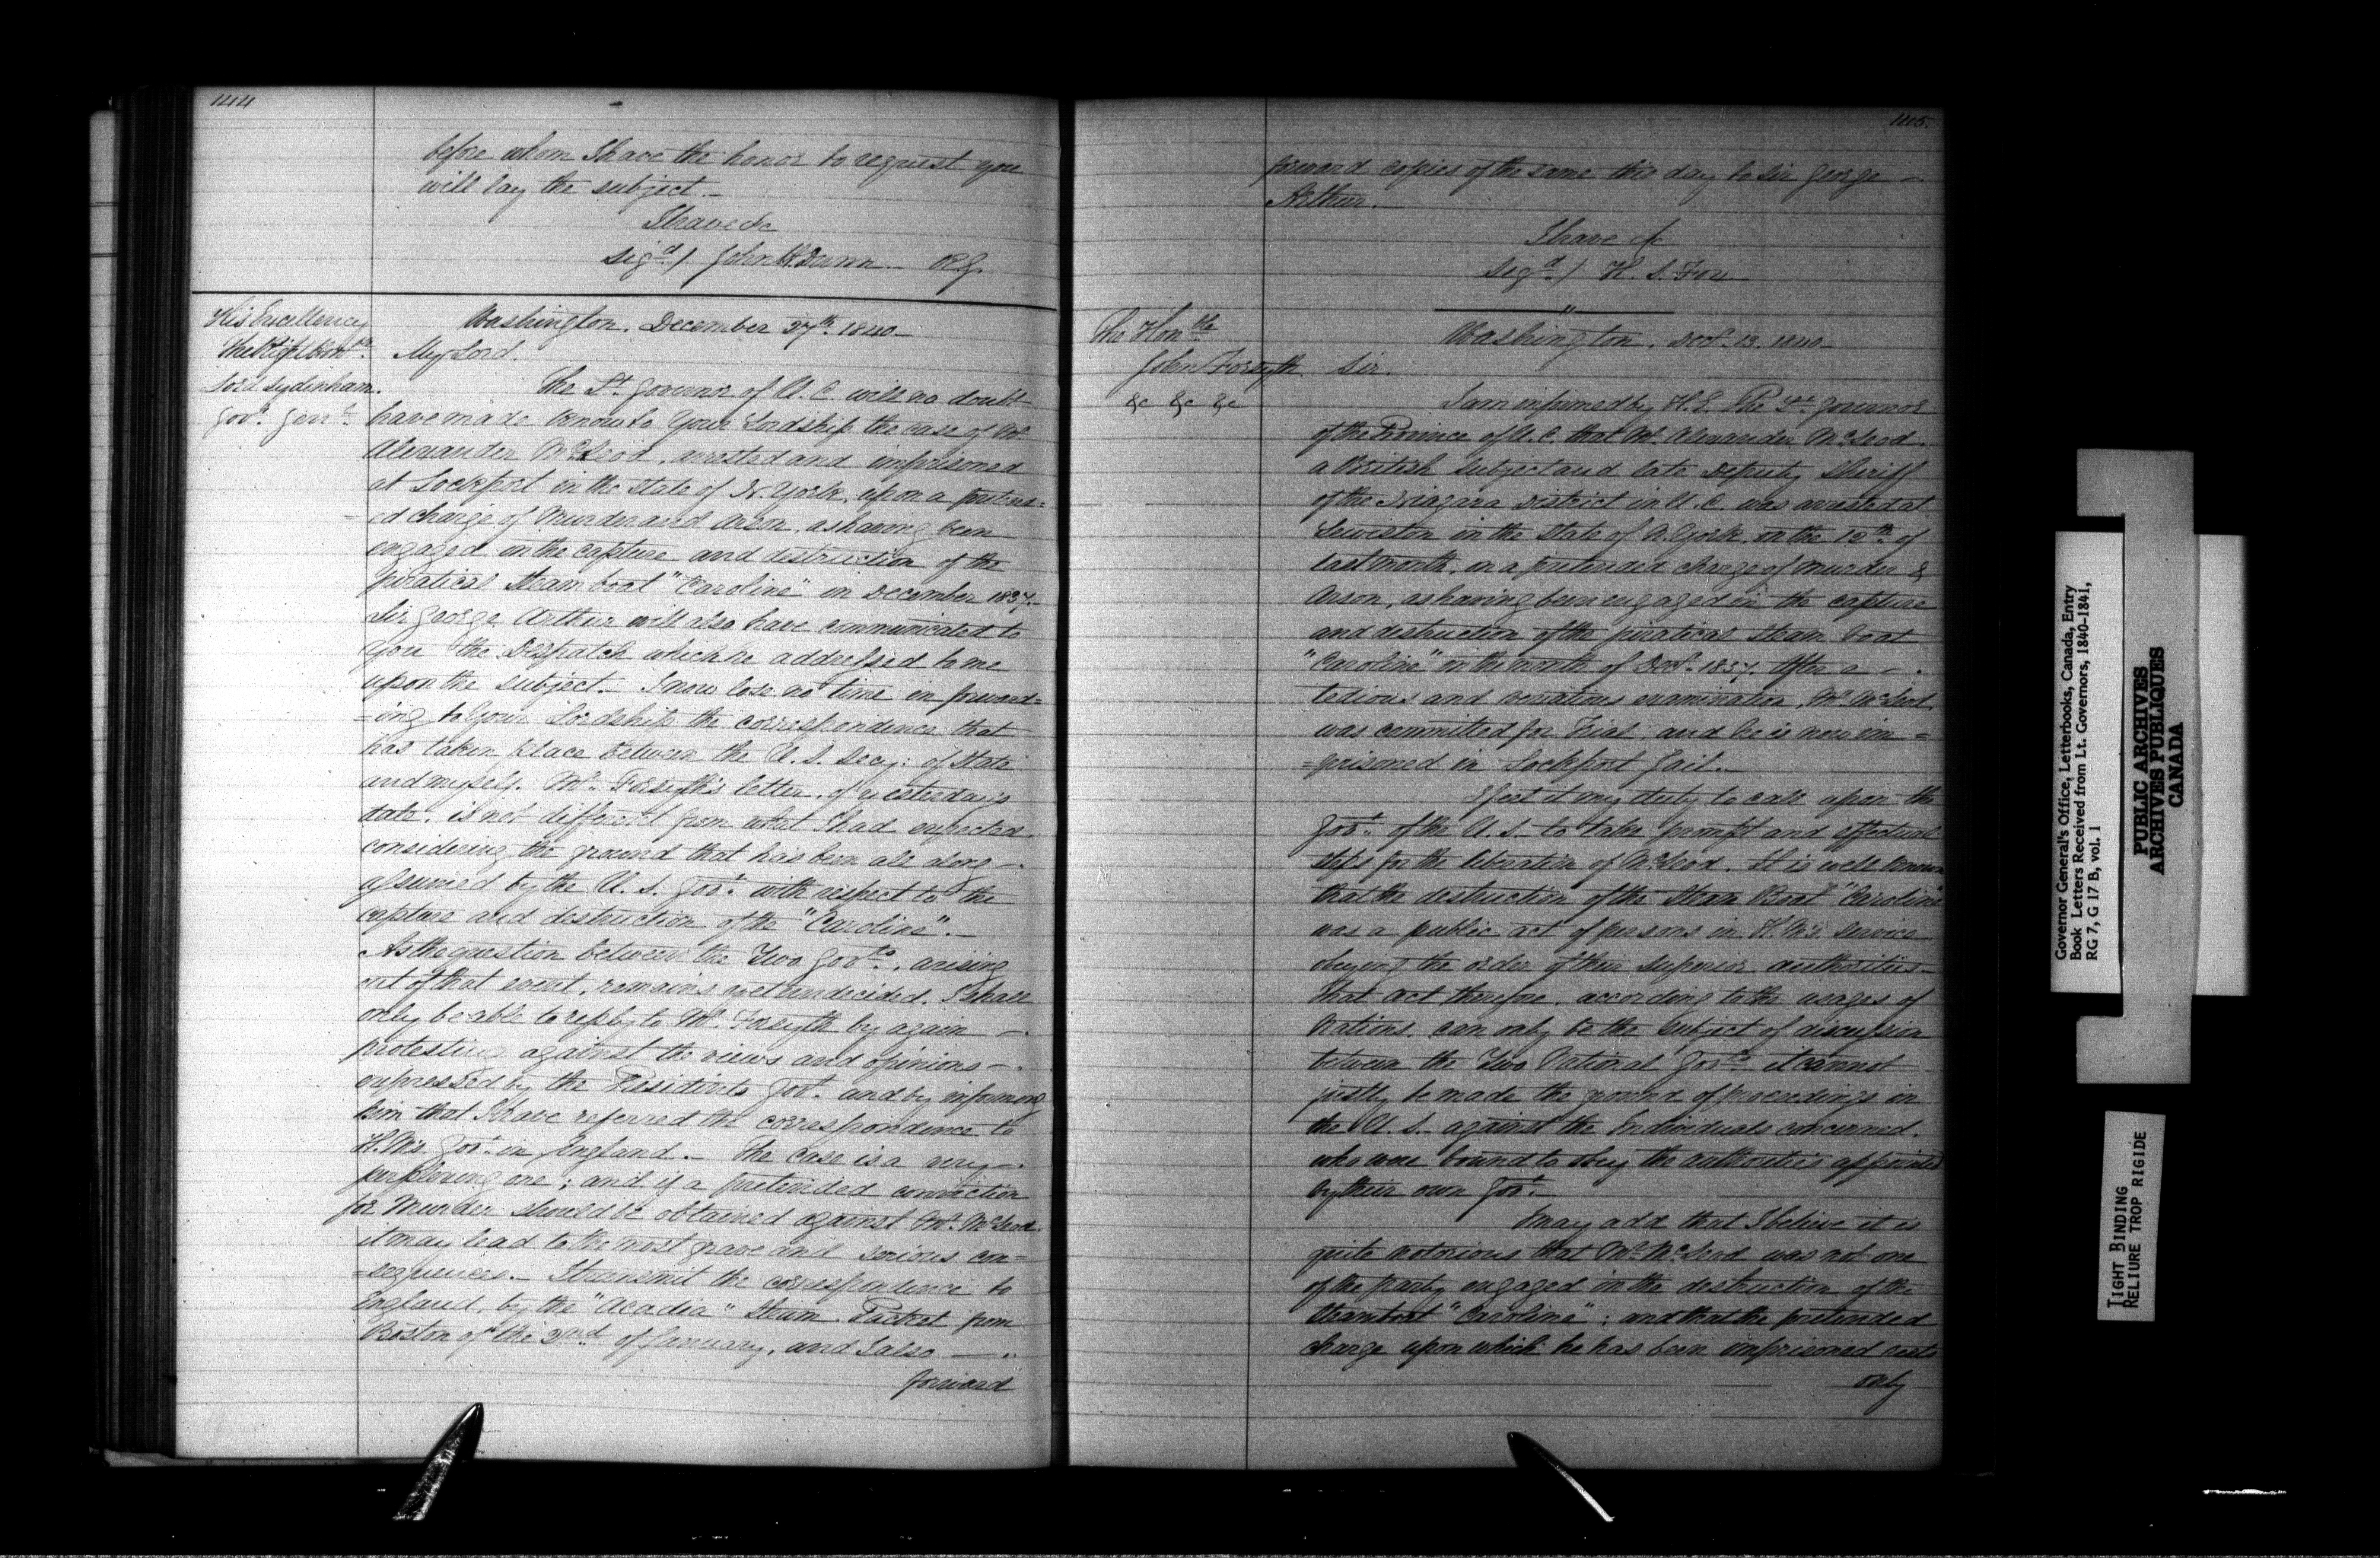 144
before whom I have the honor to request you
will lay the subject._
I have &c
Sigd / John H. Dunn _ R.G.
His Excellency
The Right Honble
Lord Sydenham.
Govr. Genl.
Washington. December 27th 1840_
My Lord.
The Lt Governor of U. C. will no doubt
have made know to Your Lordship the case of Mr
Alexander McLeod, arrested and imprisoned
at Lockport in the State of N. York, upon a pretend=
=ed charge of Murder and Arson, as having been
engaged in the capture and destruction of the
piratical Steam boat "Caroline" in December 1837._
Sir George Arthur will also have communicated to
you the Despatch which he addressed to me
upon the subject._ I now lose no time in forward=
=ing to Your Lordship the correspondence that
has taken place between the U. S. Secy: of State
and myself. Mr. Forsyth's letter, of yesterday's
date, is not different from what I had expected
considering the ground that has been all along _.
assumed by the U. S. Govt. with respect to the
capture and destruction of the "Caroline"._
As the question between the Two Govts., arising
out of that event, remains yet undecided. I shall
only be able to reply to Mr. Forsyth by again _.
protesting against the views and opinions _.
expressed by the Presidents Govt. and by informing
him that I have referred the correspondence to
H. M's. Govt. in England._ The case is a very _.
perplexing one; and if a pretended conviction
for Murder should be obtained against Mr. McLeod
it may lead to the most grave and serious con=
=sequences._ I transmit the correspondence to
England, by the "Acadia" Steam Packet from
Boston of the 2nd of January, and I also _ ..
forward
145.
forward copies of the same this day to Sir George _
Arthur._
I have &c
Sigd / H. S. Fox
The Honble
John Forsyth
&c &c &c
Washington. Decr. 13. 1840_
Sir.
I am informed by H. E. The Lt. Governor
of the Province of U. C. that Mr. Alexander McLeod
a British subject and late Deputy Sheriff
of the Niagara District in U. C. was arrested at
Lewiston in the State of N. York on the 12th of
last month, on a pretended charge of Murder &
Arson, as having been engaged in the capture
and destruction of the piratical Steam boat
"Caroline" in the month of Decr. 1837. After a _ .
tedious and vexatious examination, Mr. McLeod
was committed for Trial, and he is now im =
=prisoned in Lockport Jail._
I feel it my duty to call upon the
Govt. of the U. S. to take prompt and effectual
steps for the liberation of McLeod. It is well known
that the destruction of the Steam Boat "Caroline"
was a public act of persons in H. M's. Service
obeying the order of their Superior authorities_
That act therefore, according to the usages of
Nations can only be the subject of discussion
between the Two National Govts it cannot
justly be made the ground of proceedings in
the U. S. against the Individuals concerned.
who were bound to obey the authorities appointed
by their own Govt._
I may add that I believe it is
quite notorious that Mr McLeod was not one
of the party engaged in the destruction of the
Steamboat "Caroline"; and that the pretended
charge upon which he has been imprisoned rests
only
Governor General's Office, Letterbooks, Canada, Entry
Book Letters Received from Lt. Governors, 1840-1841,
RG 7, G 17 B, vol. 1
PUBLIC ARCHIVES
ARCHIVES PUBLIQUES
CANADA
TIGHT BINDING
RELIURE TROP RIGIDE